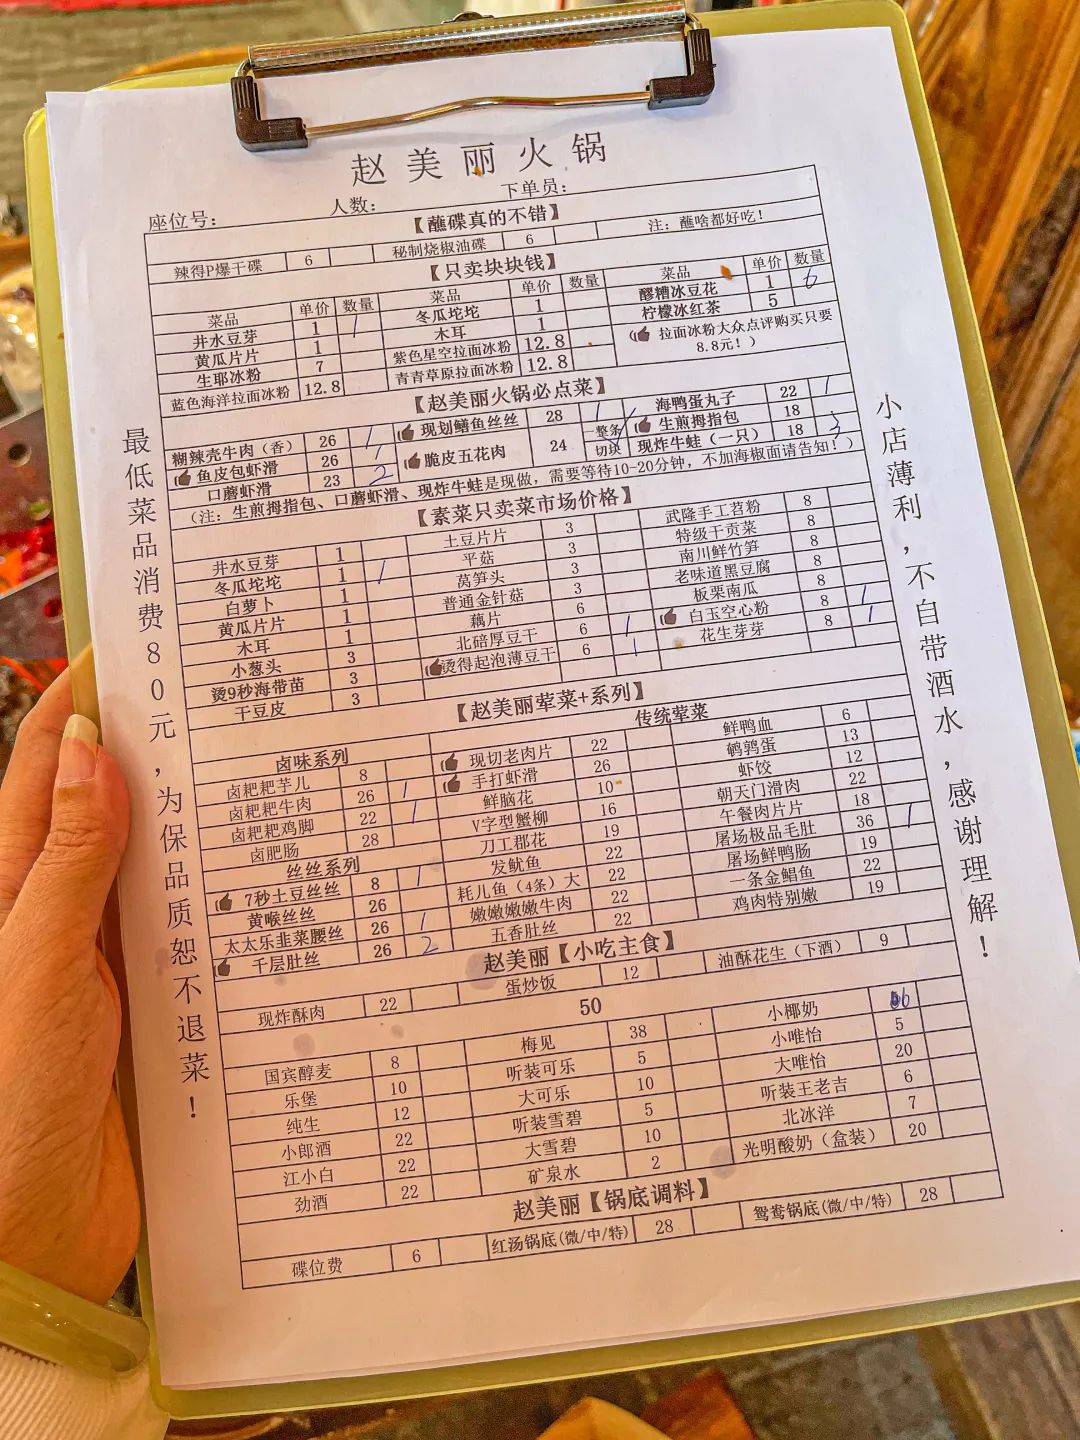 赵美丽火锅
座位号： 人数： 下单员：
【蘸碟真的不错】
辣得P爆干碟 6 秘制烧椒油碟 6 注：蘸啥都好吃！
【只卖块块钱】
菜品 单价 数量 菜品 单价 数量 菜品 单价 数量
井水豆芽 1 1 冬瓜坨坨 1 醪糟冰豆花 1 6
黄瓜片片 1 木耳 1 柠檬冰红茶 5
生耶冰粉 7 紫色星空拉面冰粉 12.8 拉面冰粉大众点评购买只要
蓝色海洋拉面冰粉 12.8 青青草原拉面冰粉 12.8 8.8元！）
【赵美丽火锅必点菜】
糊辣壳牛肉（香） 26 1 现划鳝鱼丝丝 28 1 一整条 海鸭蛋丸子 22 1
鱼皮包虾滑 26 脆皮五花肉 24 切块 生煎拇指包 18
口蘑虾滑 23 2 现炸牛蛙（一只） 18 3
（注：生煎拇指包、口蘑虾滑、现炸牛蛙是现做，需要等待10-20分钟，不加海椒面请告知！）
【素菜只卖菜市场价格】
井水豆芽 1 土豆片片 3 武隆手工苕粉 8
冬瓜坨坨 1 1 平菇 3 特级干贡菜 8
白萝卜 1 莴笋头 3 南川鲜竹笋 8
黄瓜片片 1 普通金针菇 3 老味道黑豆腐 8
木耳 1 藕片 6 板栗南瓜 8
小葱头 3 北碚厚豆干 6 1 白玉空心粉 8 1
烫9秒海带苗 3 烫得起泡薄豆干 6 1 花生芽芽 8 1
干豆皮 3
【赵美丽荤菜+系列】
卤味系列 传统荤菜
卤粑粑芋儿 8 现切老肉片 22 鲜鸭血 6
卤粑粑牛肉 26 1 手打虾滑 26 鹌鹑蛋 13
卤粑粑鸡脚 22 1 鲜脑花 10 虾饺 12
卤肥肠 28 V字型蟹柳 16 朝天门滑肉 22
丝丝系列 刀工郡花 19 午餐肉片片 18
7秒土豆丝丝 8 1 发鱿鱼 22 屠场极品毛肚 36 1
黄喉丝丝 26 耗儿鱼（4条）大 22 屠场鲜鸭肠 19
太太乐韭菜腰丝 26 1 嫩嫩嫩嫩牛肉 22 一条金鲳鱼 22
千层肚丝 26 2 五香肚丝 22 鸡肉特别嫩 19
赵美丽【小吃主食】
现炸酥肉 22 蛋炒饭 12 油酥花生（下酒） 9
50
国宾醇麦 8 梅见 38 小椰奶 6
乐堡 10 听装可乐 5 小唯怡 5
纯生 12 大可乐 10 大唯怡 20
小郎酒 22 听装雪碧 5 听装王老吉 6
江小白 22 大雪碧 10 北冰洋 7
劲酒 22 矿泉水 2 光明酸奶（盒装） 20
赵美丽【锅底调料】
碟位费 6 红汤锅底(微/中/特) 28 鸳鸯锅底(微/中/特) 28
最低菜品消费80元，为保品质恕不退菜！
小店薄利，不自带酒水，感谢理解！